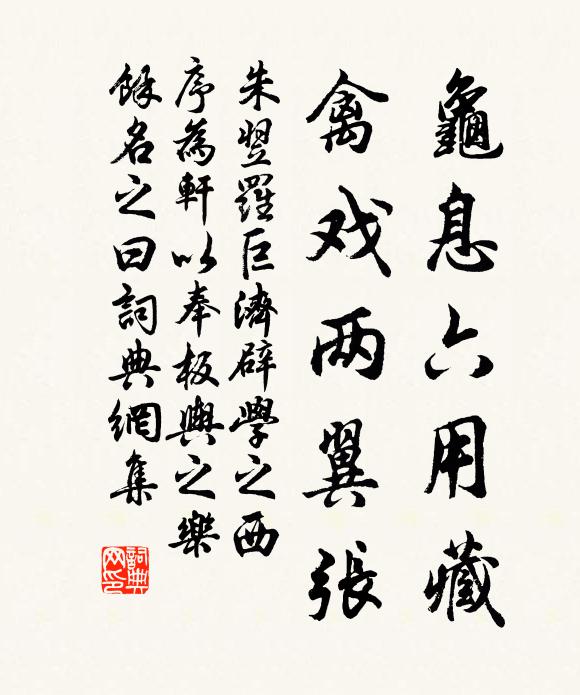 龜息六用藏
禽戏两翼張
朱翌羅巨濟辟學之西
序為軒以奉板輿之樂
餘名之曰詞典網集
詞典網印